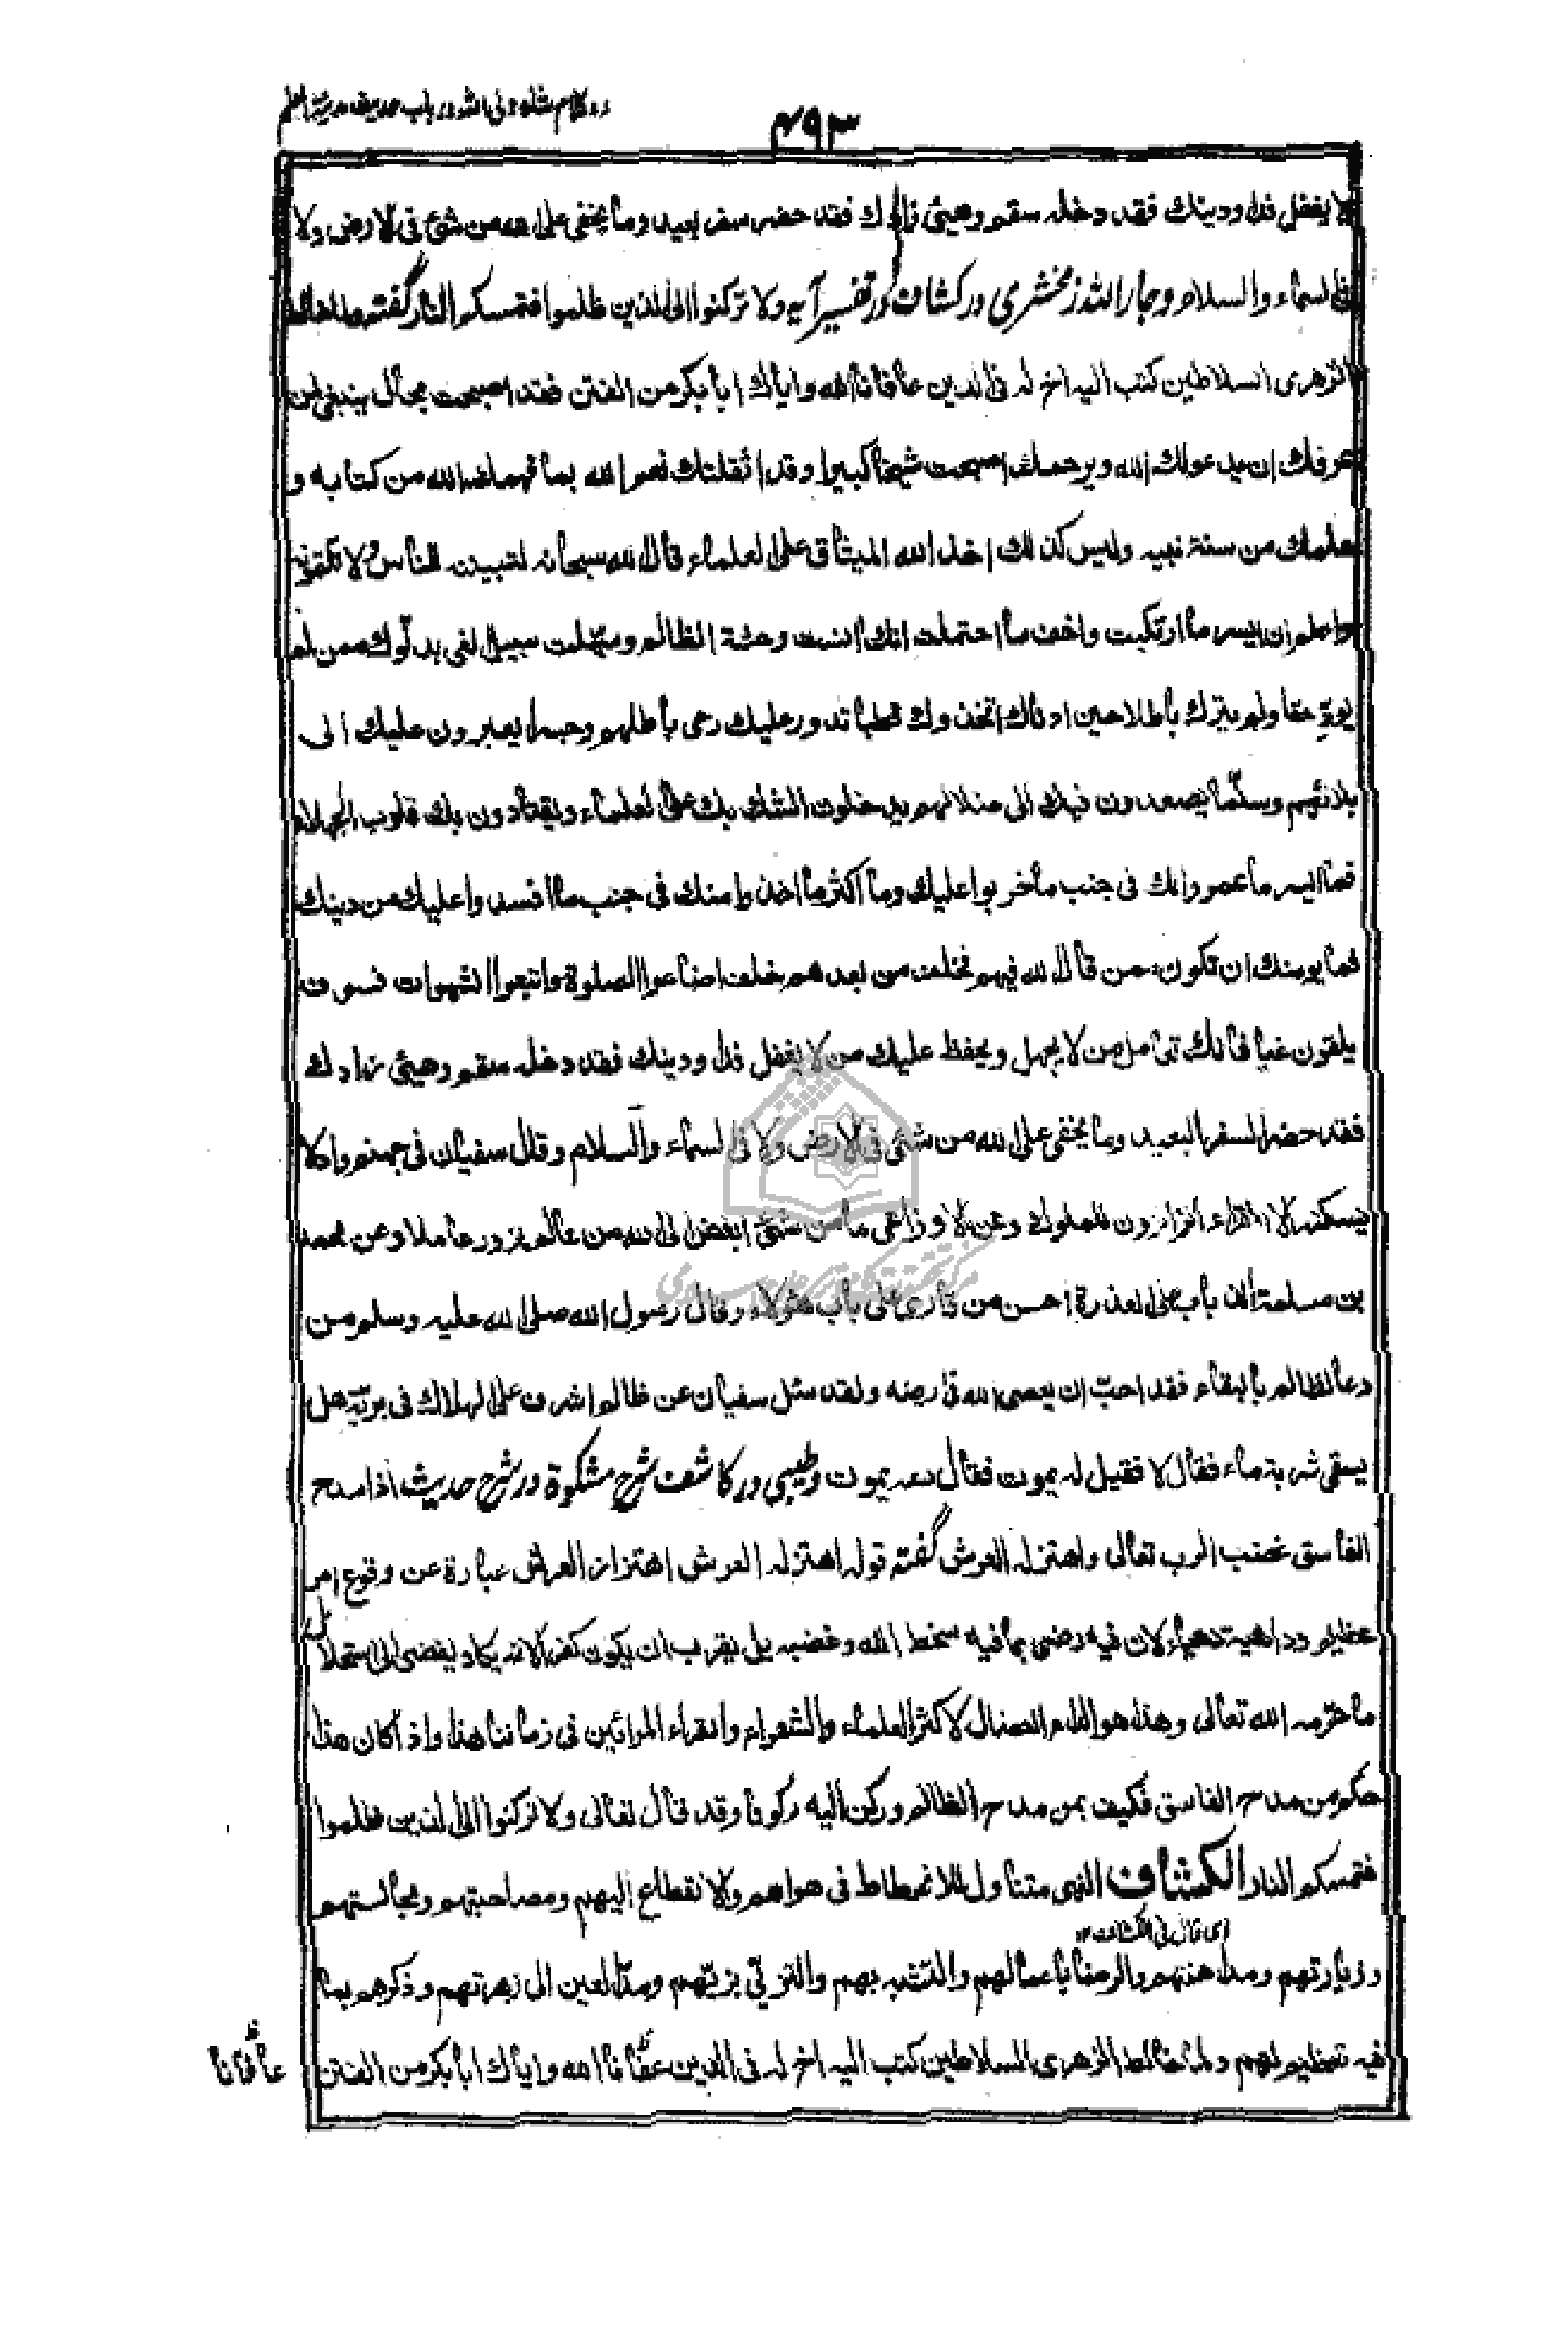 رد کلام شاه ولی الله در باب حدیث مدینة العلم
۴۹۳
لا یغفل فداو دینك فقد دخله سقم وهیئی زادك فقد حضر سفر بعید وما یخفی علی الله من شئ فی الارض ولا
فی السماء والسلام وجار الله زمخشری در کشاف در تفسیر آیه ولا ترکنوا الی الذین ظلموا فتمسکم النار گفته ولما خالط
الزهری السلاطین کتب الیه اخ له فی الدین عافانا الله وایاك ابا بکر من الفتن فقد اصبحت بحال ینبغی لمن
عرفك ان یدعو لك الله ویرحمك اصبحت شیخا کبیرا وقد اثقلتك نعم الله بما فهمك الله من کتابه و
علمك من سنة نبیه ولیس کذلك اخذ الله المیثاق علی العلماء قال الله سبحانه لتبیننه للناس ولا تکتمونه
واعلم ان ایسر ما ارتکبت واخف ما احتملت انك آنست وحشة الظالم وسهّلت سبیل الغی بدنوّك ممن لم
یؤدّ حقا ولم یترك باطلا حین ادناك اتخذوك قطبا تدور علیك رحی باطلهم وجسرا یعبرون علیك الی
بلائهم وسلّما یصعدون فیك الی ضلالهم یدخلون الشك بك علی العلماء ویقتادون بك قلوب الجهلاء
فما ایسر ما عمروا لك فی جنب ما خربوا علیك وما اکثر ما اخذوا منك فی جنب ما افسدوا علیك من دینك
فما یومنك ان تکون ممن قال الله فیهم فخلف من بعدهم خلف اضاعوا الصلوة واتبعوا الشهوات فسوف
یلقون غیا فانك تعامل من لا یجهل ویحفظ علیك من لا یغفل فداو دینك فقد دخله سقم وهیئی زادك
فقد حضر السفر البعید وما یخفی علی الله من شئ فی الارض ولا فی السماء والسلام وقال سفیان فی جهنم واد لا
یسکنه الا القراء الزائرون للملوك وعن الاوزاعی ما من شئ ابغض الی الله من عالم یزور عاملا وعن محمد
بن مسلمة الذباب علی العذرة احسن من قاری علی باب هؤلاء وقال رسول الله صلی الله علیه وسلم من
دعا لظالم بالبقاء فقد احبّ ان یعصی الله فی ارضه ولقد سئل سفیان عن ظالم اشرف علی الهلاك فی برّیّة هل
یسقی شربة ماء فقال لا فقیل له یموت فقال دعه یموت وطیبی در کاشف شرح مشکوة در شرح حدیث اذا مدح
الفاسق غضب الرب تعالی واهتز له العرش گفته قوله اهتز له العرش اهتزاز العرش عبارة عن وقوع امر
عظیم وداهیة دهیاء لان فیه رضی بما فیه سخط الله وغضبه بل یقرب ان یکون کفرا لانه یکاد یفضی الی استحلال
ما حرّمه الله تعالی وهذا هو الداء العضال لاکثر العلماء والشعراء والقراء المرائین فی زماننا هذا واذا کان هذا
حکم من مدح الفاسق فکیف بمن مدح الظالم ورکن الیه رکونا وقد قال تعالی ولا ترکنوا الی الذین ظلموا
فتمسکم النار الکشاف النهی متناول للانحطاط فی هواهم والانقطاع الیهم ومصاحبتهم ومجالستهم
ای قال فی الکشاف ۱۲
وزیارتهم ومداهنتهم والرضا باعمالهم والتشبه بهم والتزیّ بزیّهم ومدّ العین الی زهرتهم وذکرهم بما
فیه تعظیم لهم ولما خالط الزهری السلاطین کتب الیه اخ له فی الدین عافانا الله وایاك ابا بکر من الفتن
عافانا